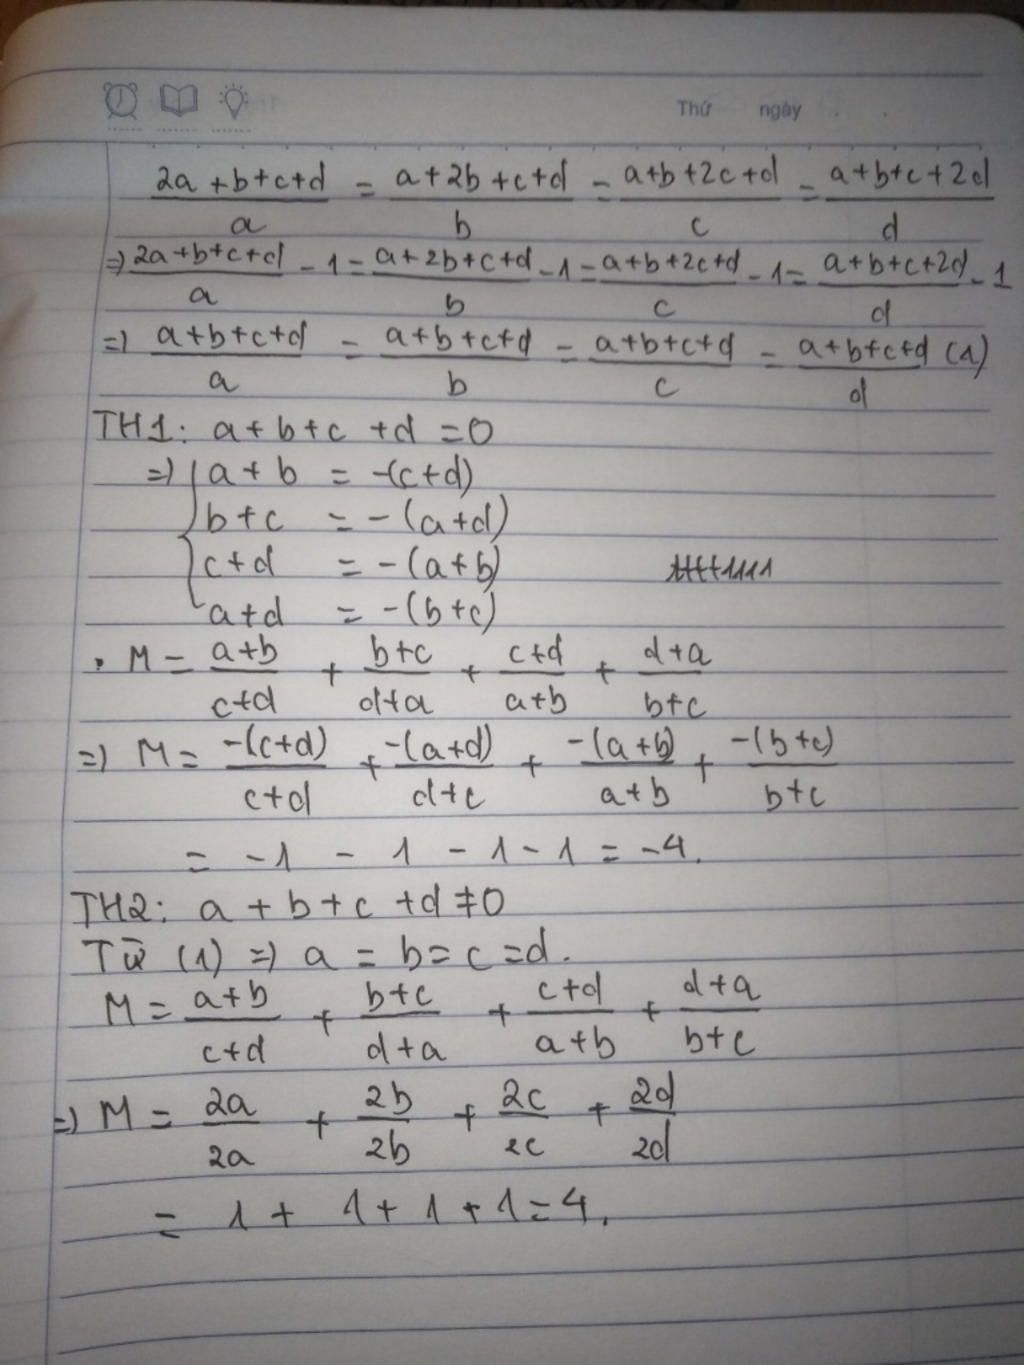 Thứ ngày
2a+b+c+d/a = a+2b+c+d/b = a+b+2c+d/c = a+b+c+2d/d
=> 2a+b+c+d/a - 1 = a+2b+c+d/b - 1 = a+b+2c+d/c - 1 = a+b+c+2d/d - 1
=> a+b+c+d/a = a+b+c+d/b = a+b+c+d/c = a+b+c+d/d (1)
TH1: a+b+c+d=0
=> { a+b = -(c+d)
b+c = -(a+d)
c+d = -(a+b)
a+d = -(b+c)
. M = a+b/c+d + b+c/d+a + c+d/a+b + d+a/b+c
=> M = -(c+d)/c+d + -(a+d)/d+c + -(a+b)/a+b + -(b+c)/b+c
= -1 - 1 - 1 - 1 = -4.
TH2: a+b+c+d≠0
Từ (1) => a = b = c = d.
M = a+b/c+d + b+c/d+a + c+d/a+b + d+a/b+c
=> M = 2a/2a + 2b/2b + 2c/2c + 2d/2d
= 1 + 1 + 1 + 1 = 4.